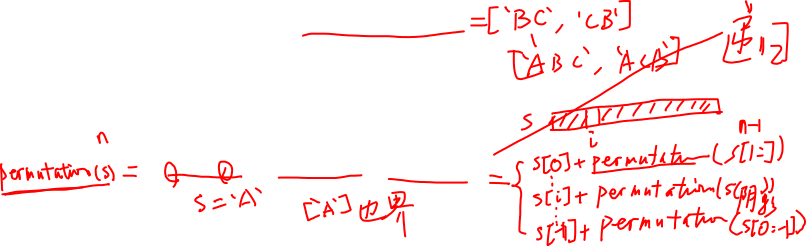 =['BC', 'CB']
['ABC', 'ACB']
s
i
n
n-1
permutation(s) =
s='A'
['A']
= { s[0] + permutation(s[1:])
s[i] + permutation(s
s[-1] + permutation(s[0:-1])